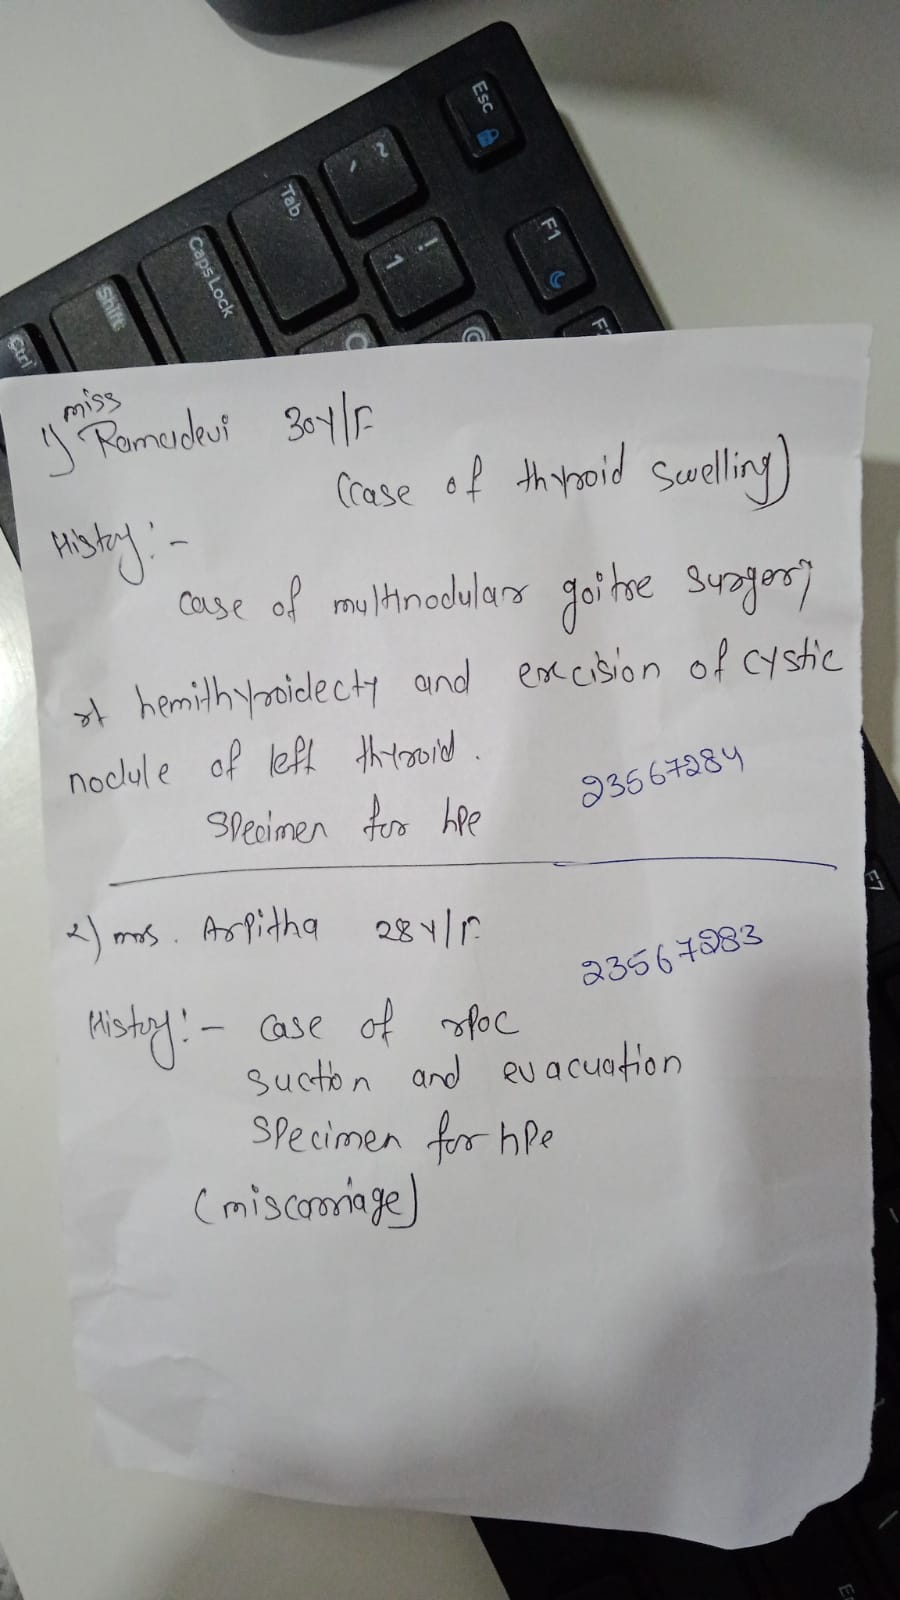 Esc
~
`
F1
Tab
!
1
Caps Lock
Shift
Ctrl
miss
1) Ramadevi 30Y/F
(case of thyroid swelling)
History:-
case of multinodular goitre surgery
rt hemithyroidecty and excision of cystic
nodule of left thyroid.
23567284
specimen for hpe
2) mrs. Arpitha 28Y/F
23567283
History:- case of rpoc
suction and evacuation
specimen for hpe
(miscarriage)
F7